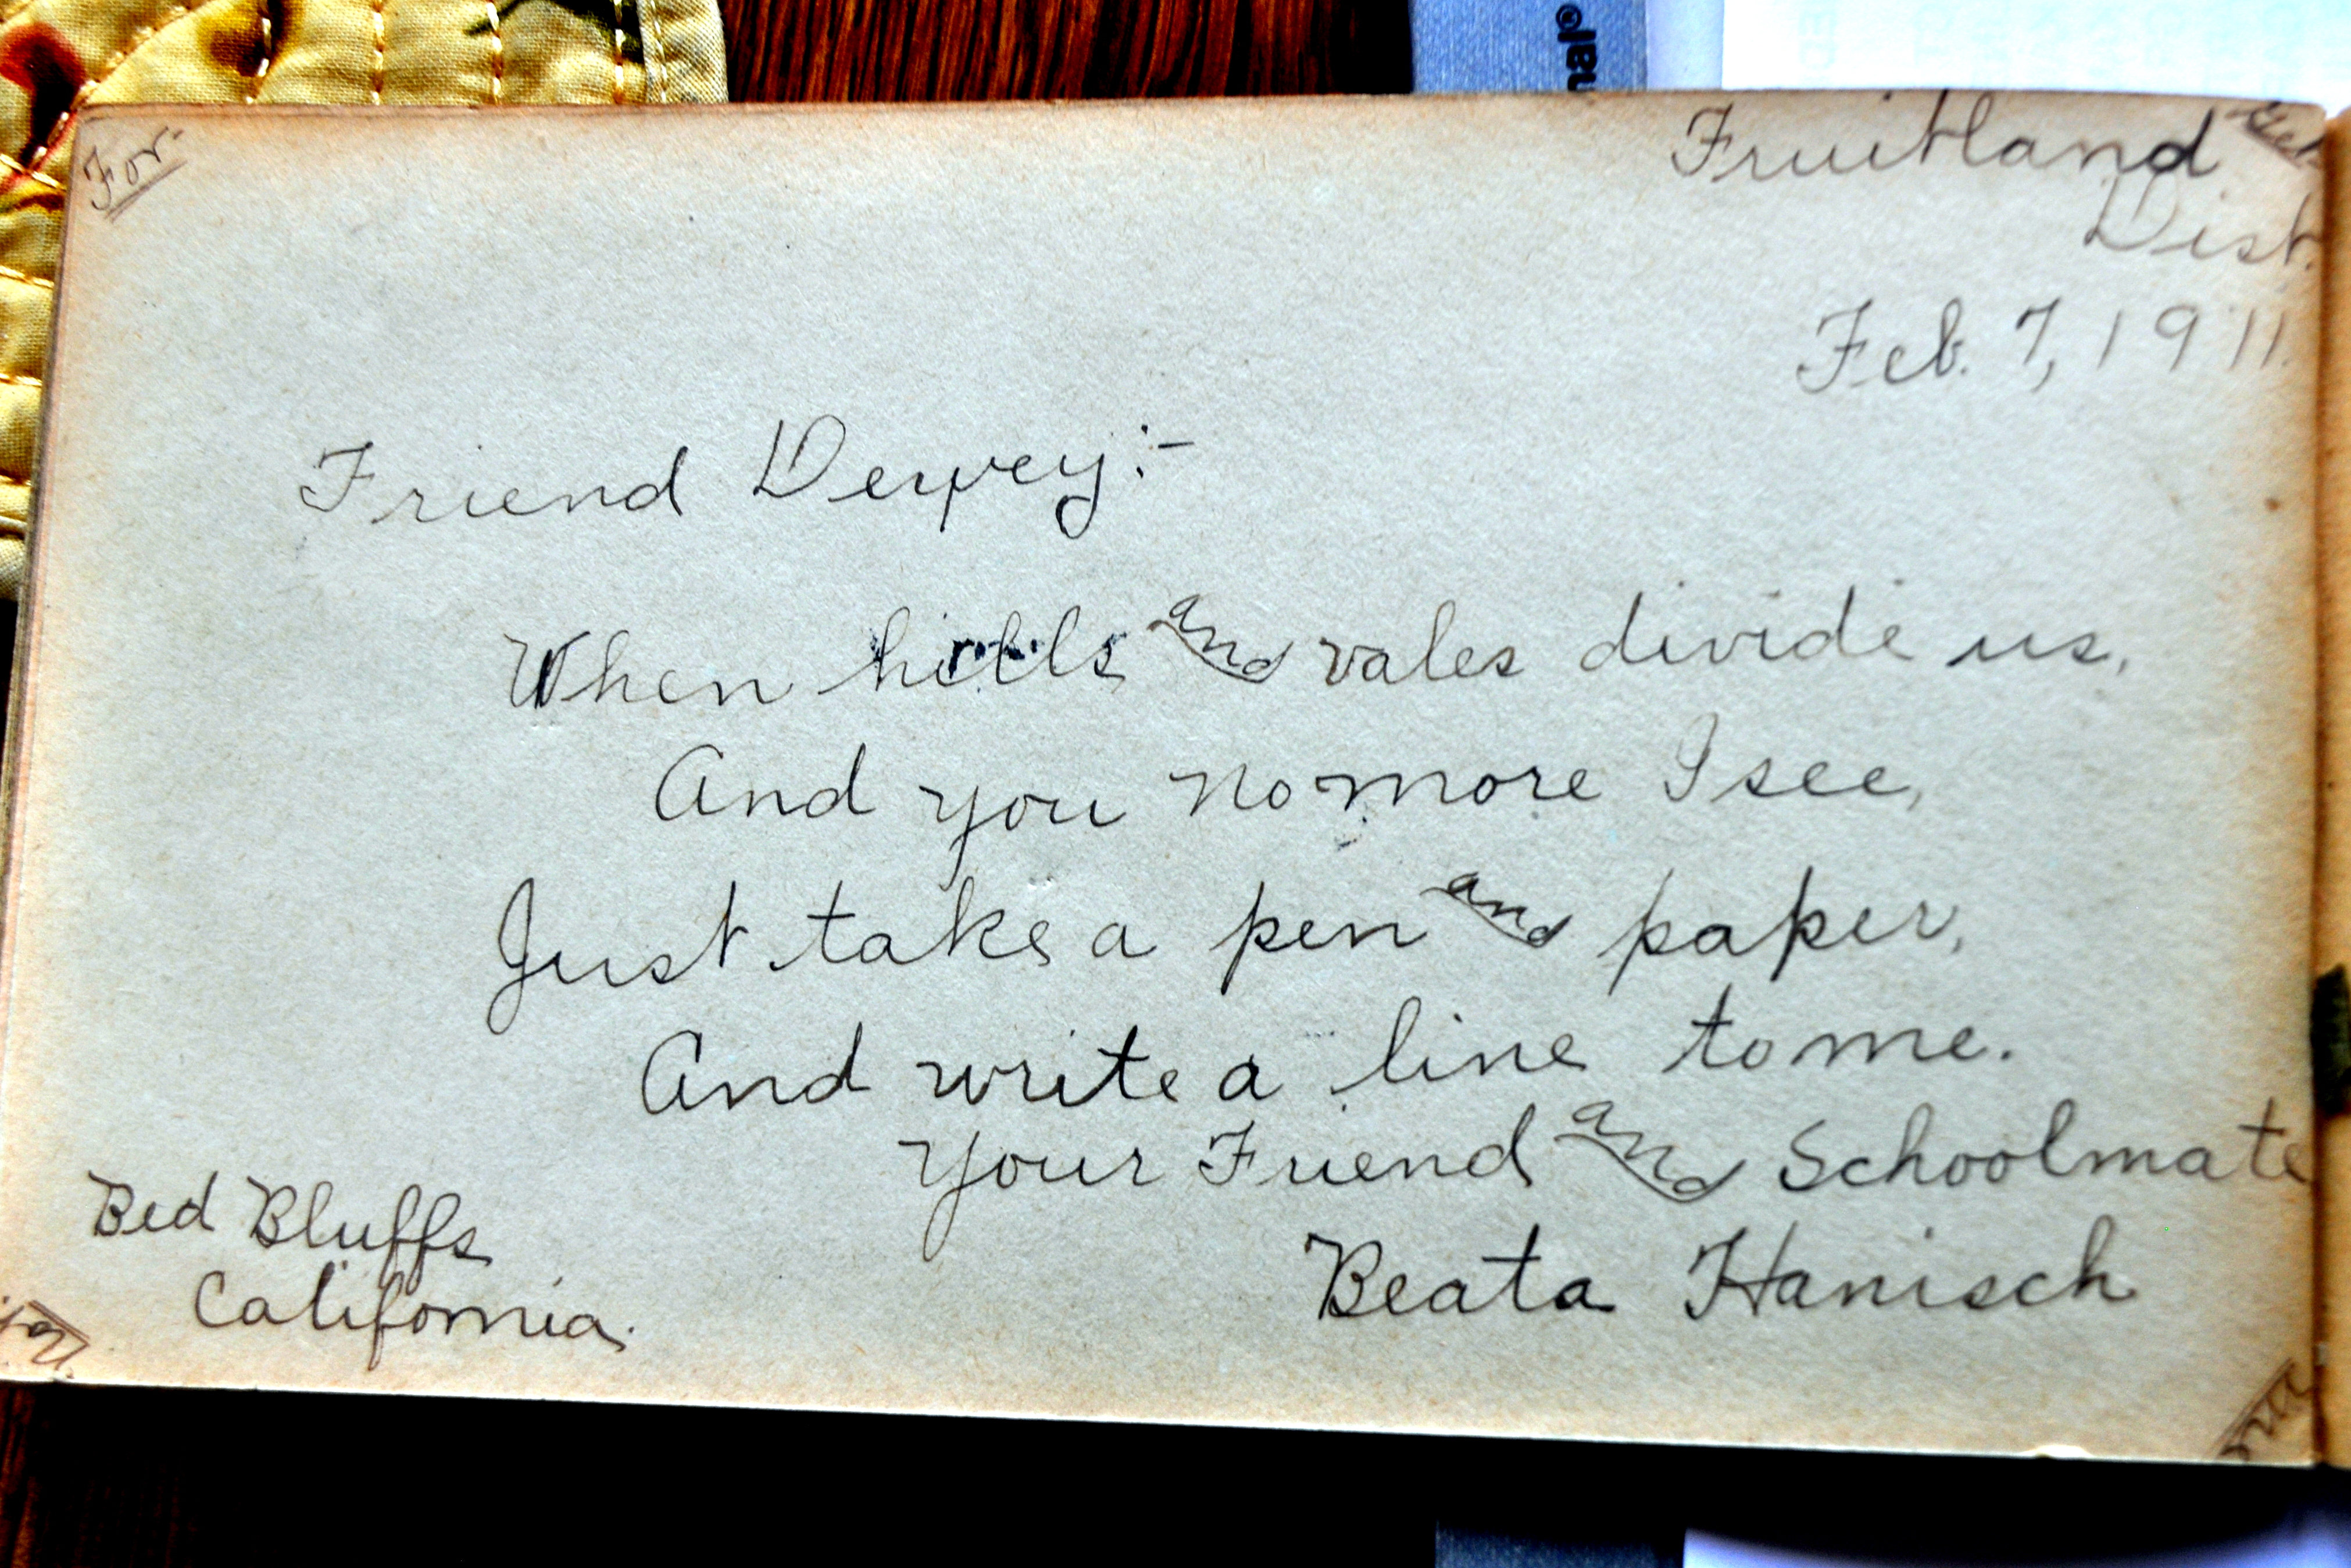 nal®
For
Fruitland
Dist.
Feb. 7, 1911.
Friend Dewey:-
When hills and vales divide us,
And you no more I see,
Just take a pen and paper,
And write a line to me.
Your Friend and Schoolmate
Beata Hanisch
Red Bluffs
California.